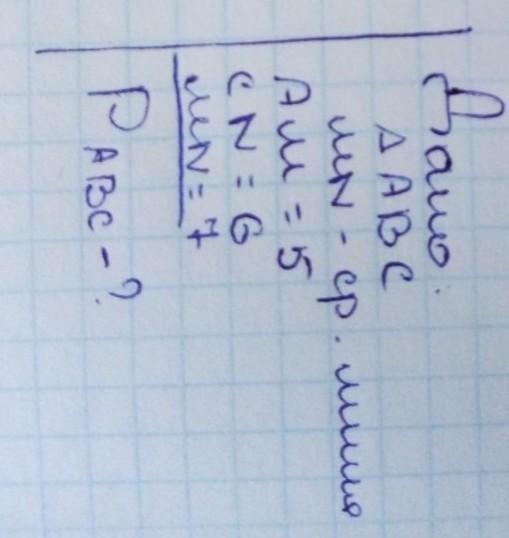 Дано:
△ ABC
MN - ср. линия
AM = 5
CN = 6
MN = 7
P ABC - ?